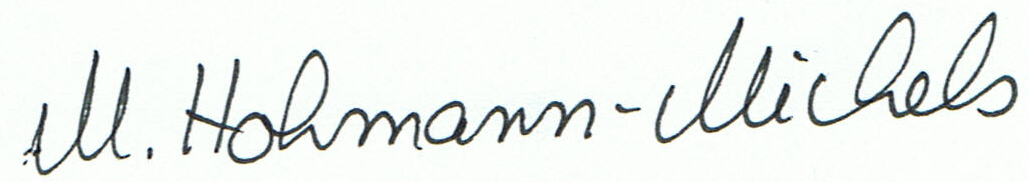 M. Hohmann-Michels